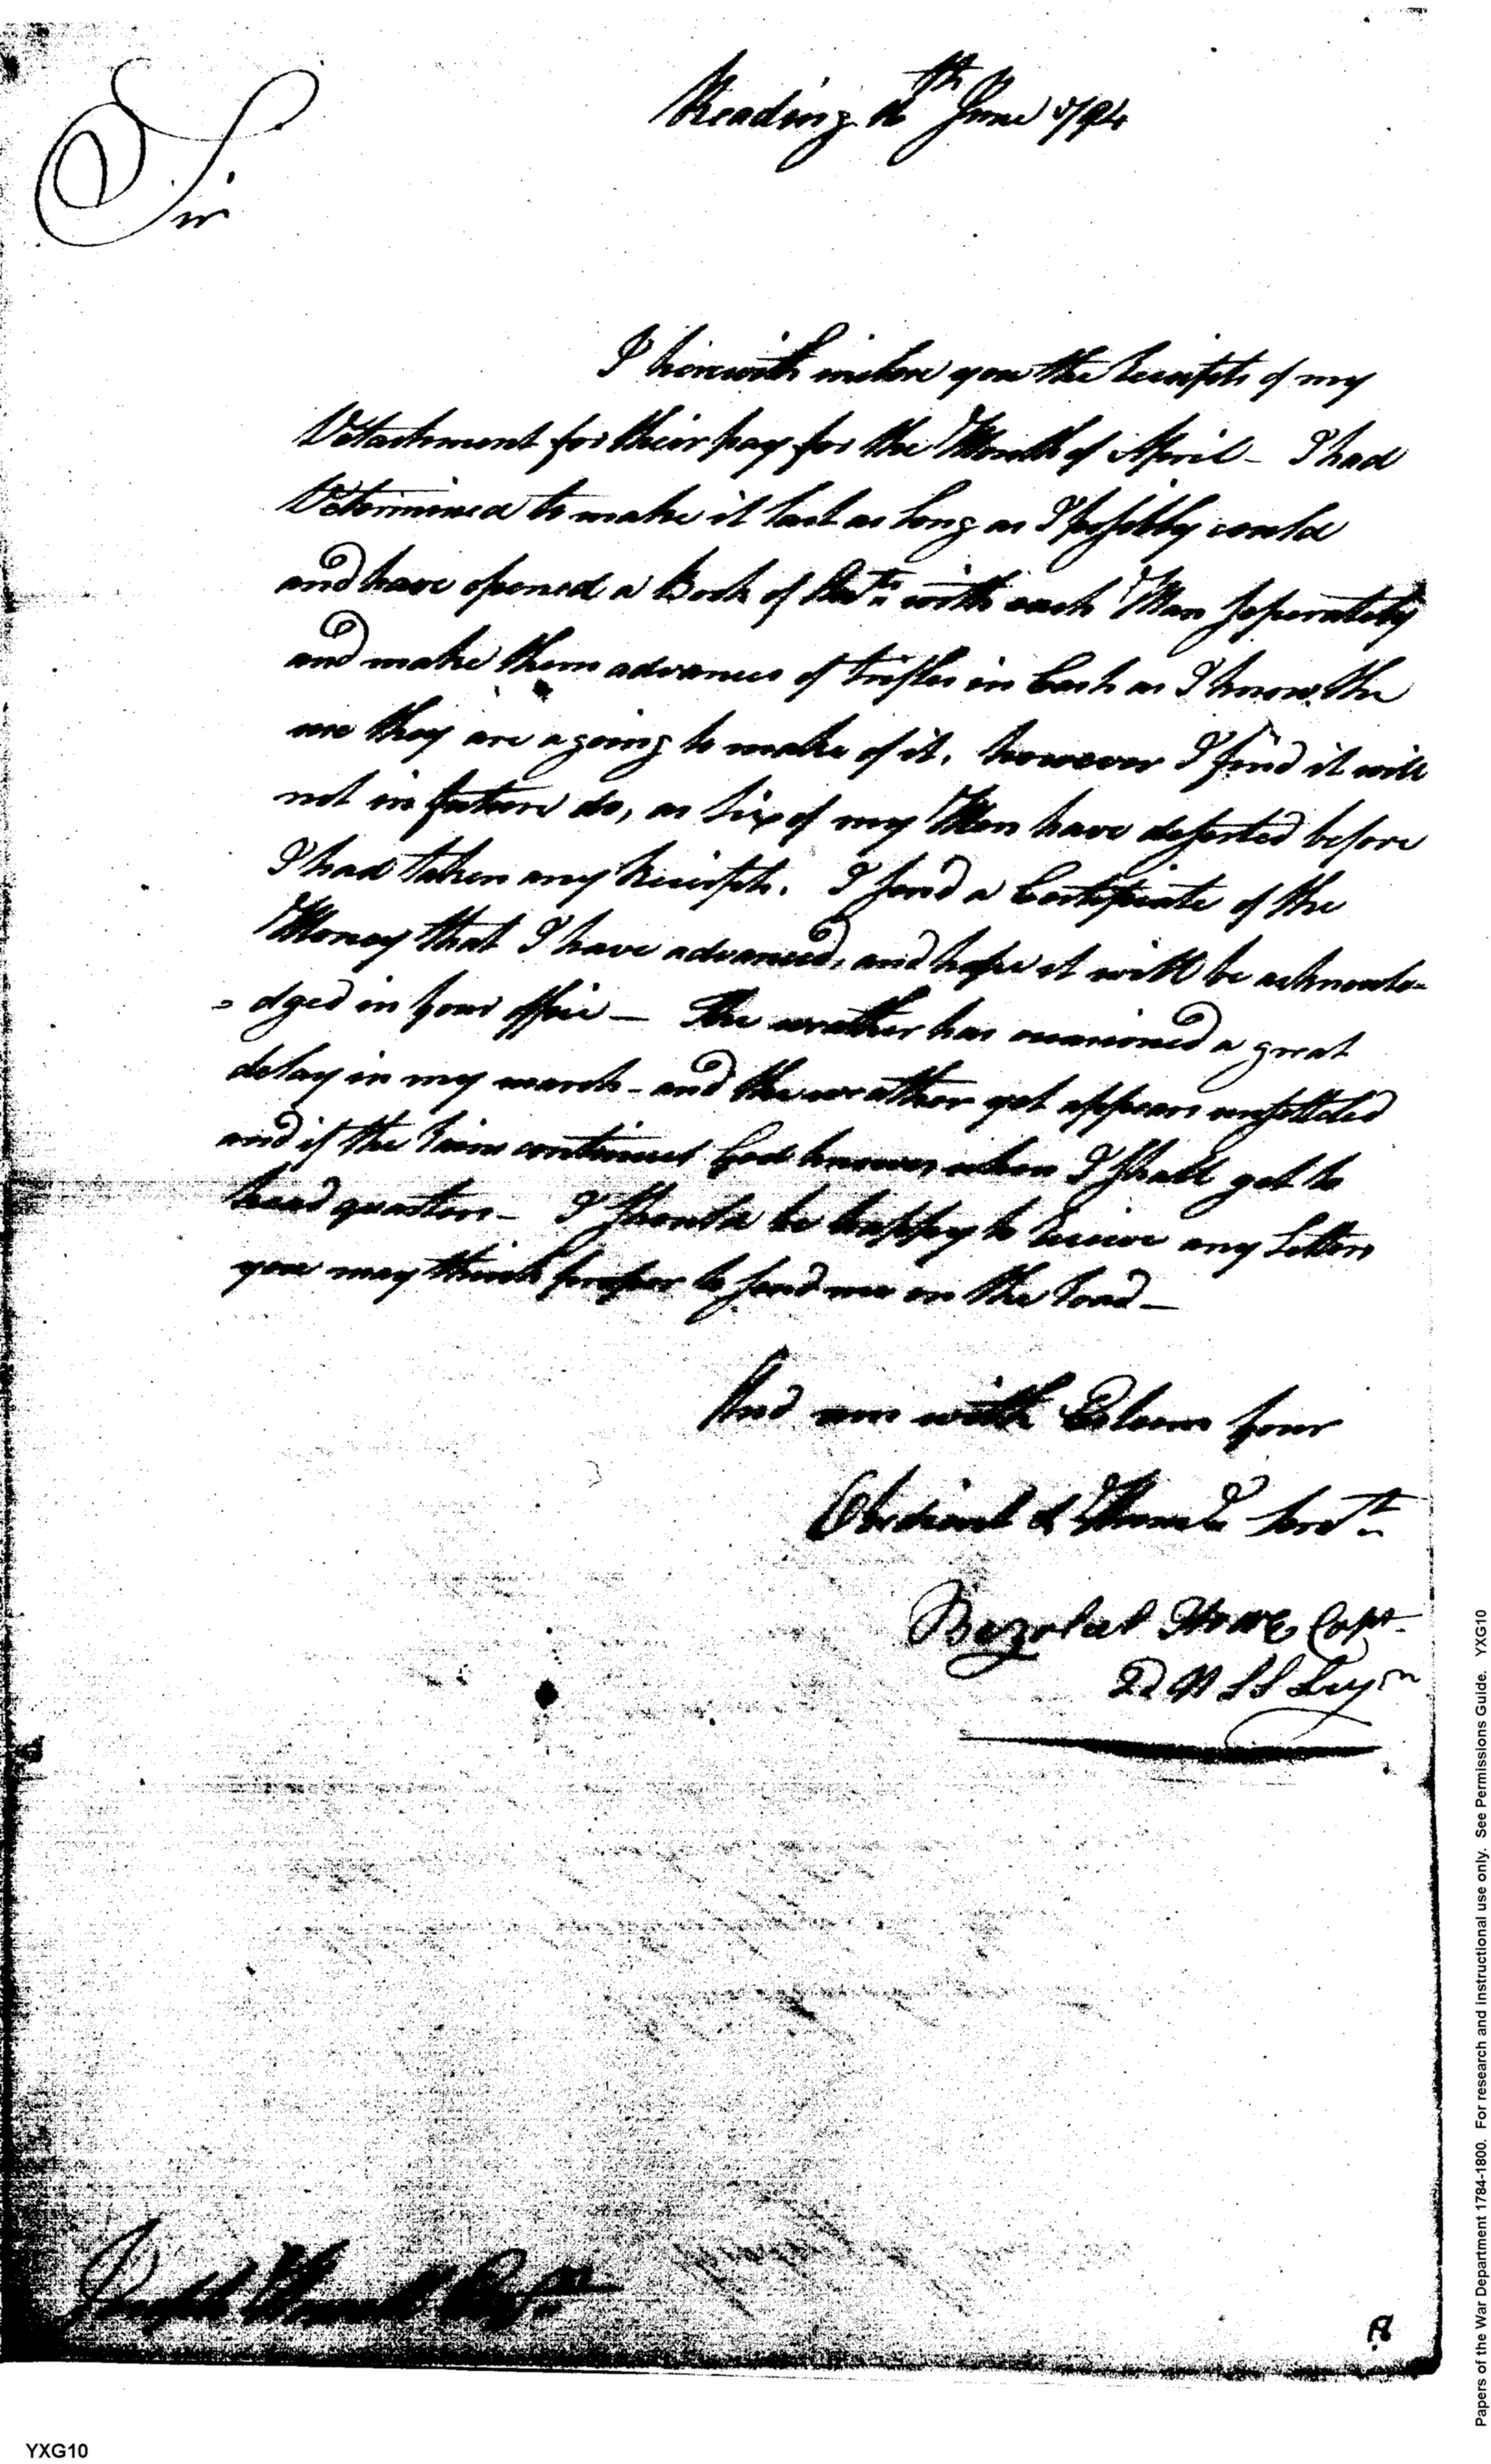 Reading 10th June 1794
Sir
I herewith inclose you the Receipts of my
Detachment for their pay for the Month of April - I had
Determined to make it last as long as I possibly could
and have opened a Book of with each Man seperately
and make them advances of trifles in Cash as I know the
use they are agoing to make of it, however I find it will
not in future do, as six of my Men have deserted before
I had taken any Receipts. I send a Certificate of the
Money that I have advanced, and hope it will be acknowle=
=dged in your office — The weather has occasioned a great
delay in my march - and the weather yet appears unsettled
and if the Rains continues God knows, when I shall get to
head quarters - I should be happy to Receive any Letters
you may think proper to send me on the Road —
And am with Esteem your
Obedient & Humble Servt
Bezaleel Howe Capt
2d U S S Legn
Joseph Howell Esqr
Papers of the War Department 1784-1800. For research and instructional use only. See Permissions Guide. YXG10
YXG10